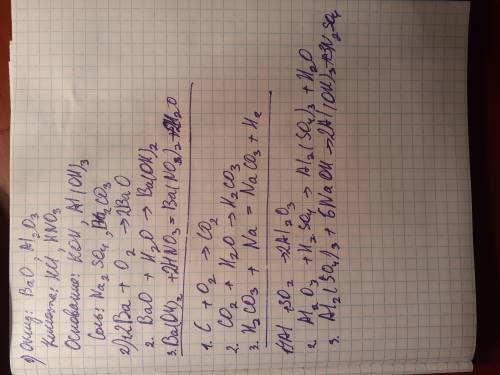 1) Оксид: BaO Al2O3
Кислота: HCl, HNO3
Основание: KOH, Al(OH)3
Соль: Na2SO4, CO3
2) 1. 2Ba + O2 → 2BaO
2. BaO + H2O → Ba(OH)2
3. Ba(OH)2 + 2HNO3 = Ba(NO3)2 + 2H2O
1. C + O2 → CO2
2. CO2 + H2O → H2CO3
3. H2CO3 + Na = NaCO3 + H2
1. 4Al + 3O2 → 2Al2O3
2. Al2O3 + H2SO4 → Al2(SO4)3 + H2O
3. Al2(SO4)3 + 6NaOH → 2Al(OH)3 + 3N2SO4